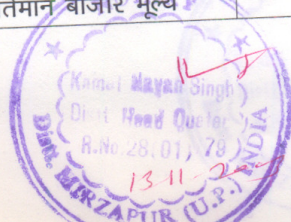 र्तमान बाजार मूल्य
Kamal Nayan Singh
Distt Head Quater
R.No.28,01,79
13-11-
Distt. MIRZAPUR (U.P.) INDIA